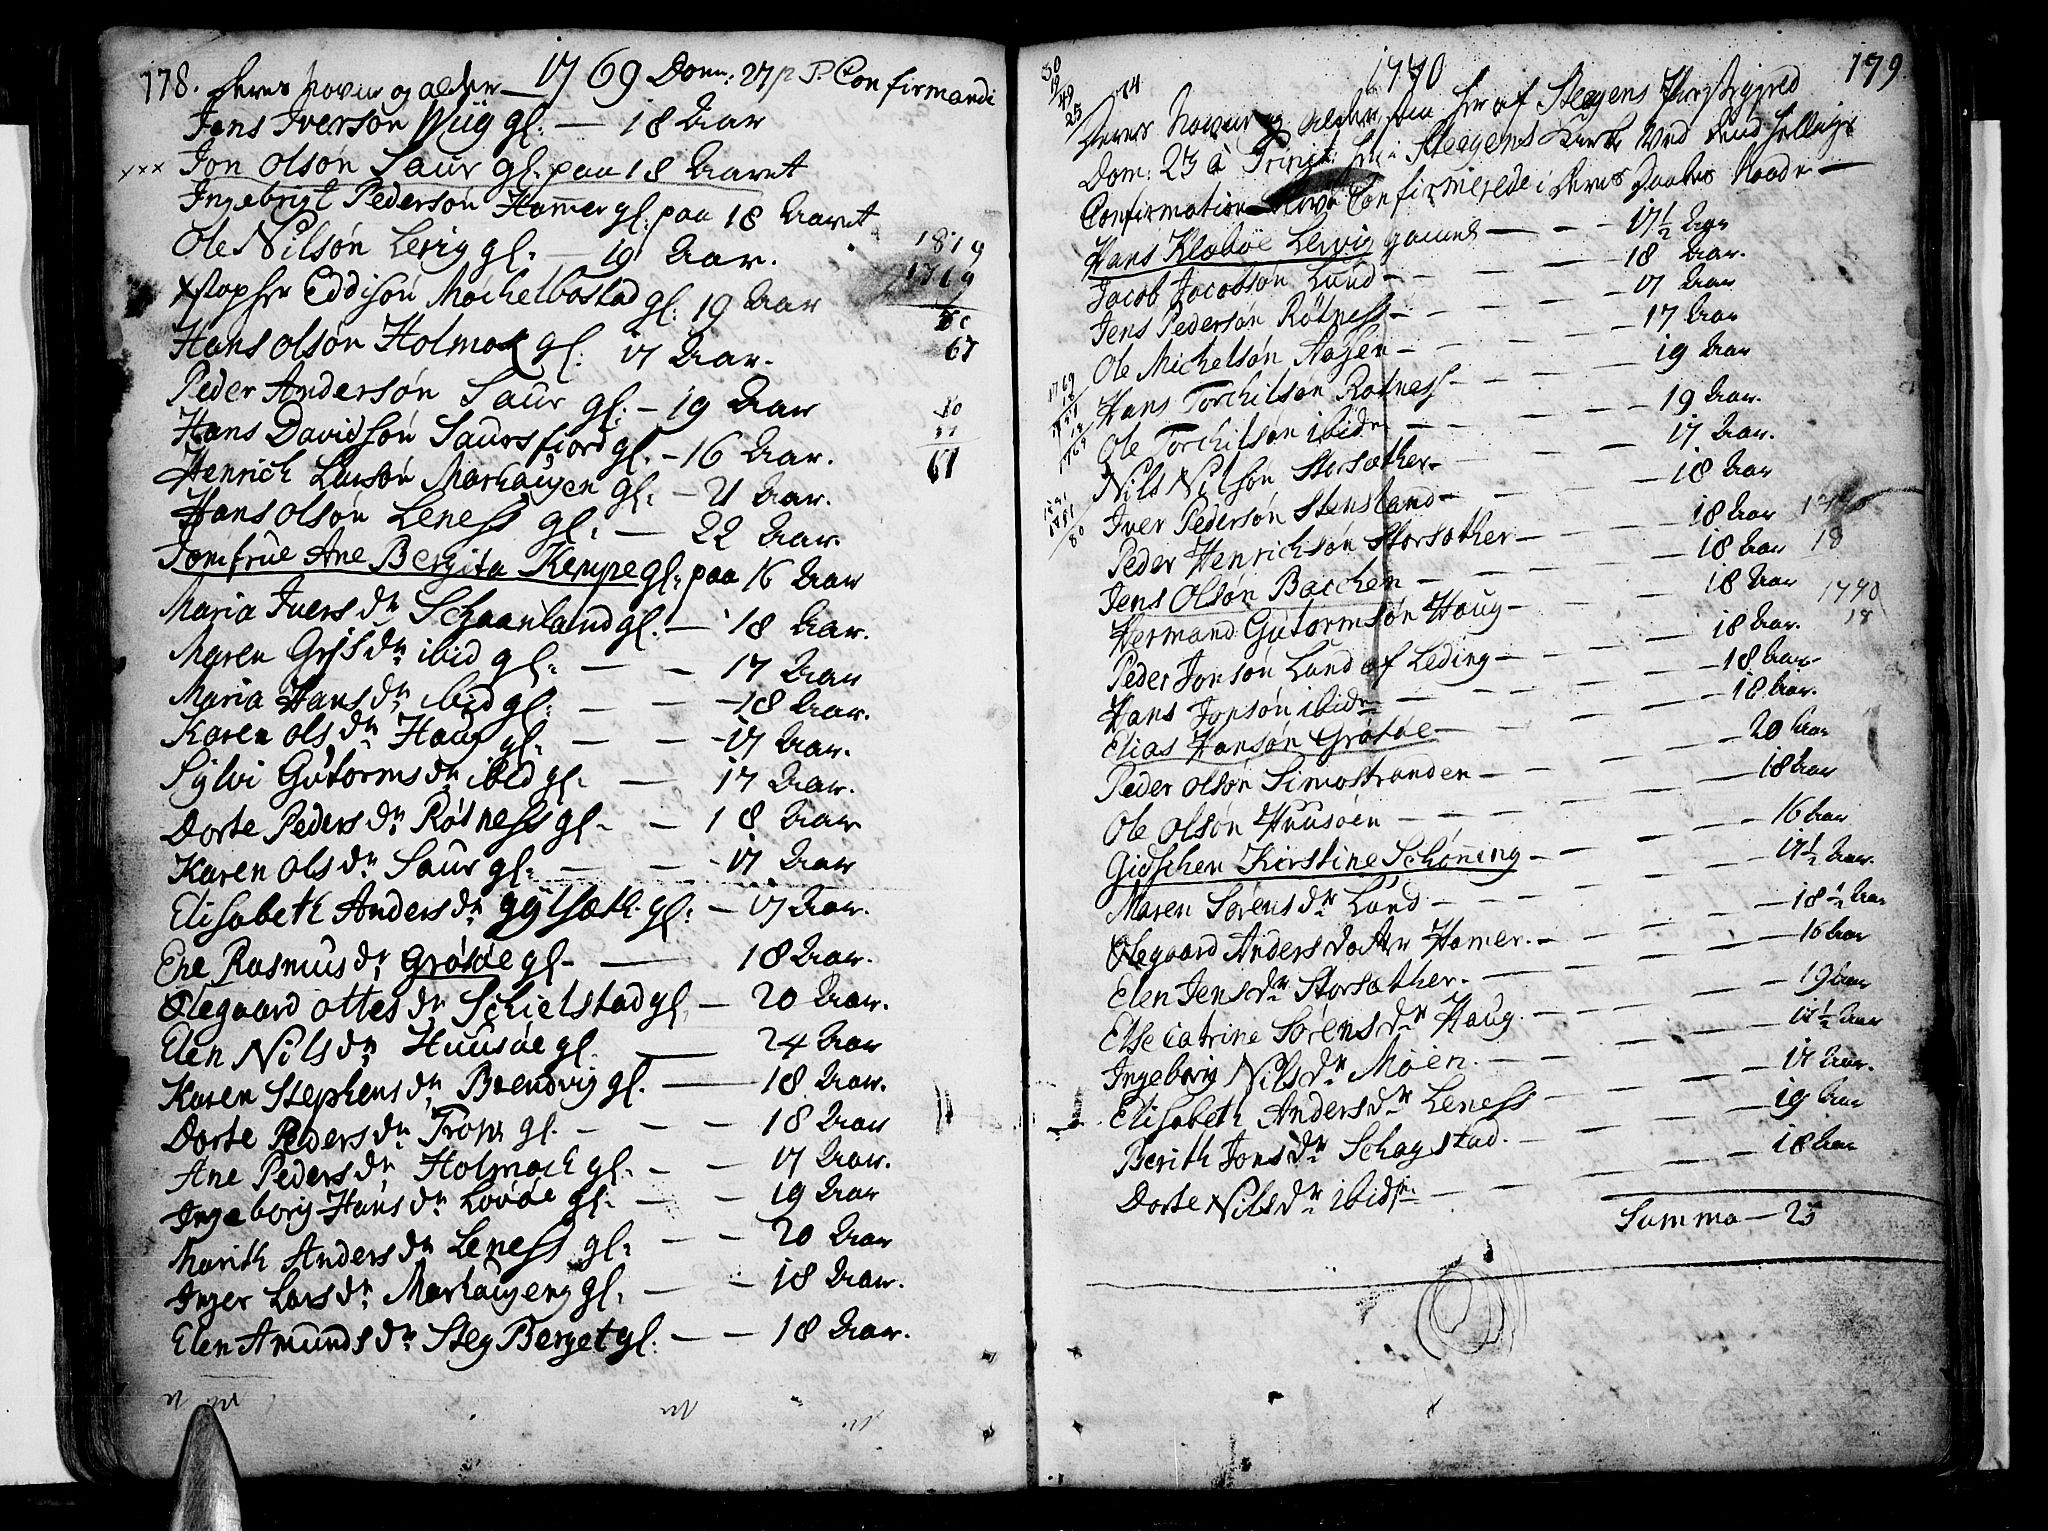 178. Deres Navne og alder 1769 Dom: 27 p T. Confirmandi
Jens Iversøn Wiig gl. — 18 Aar
xxx Jon Olsøn Saur gl. paa 18 Aaret
Ingebrigt Pedersøn Hamer gl. paa 18 Aaret
Ole Nilsøn Levig gl. — 19 Aar.
Xstopher Eddisøn Mòchelbostad gl: 19 Aar
Hans Olsøn Holmak gl: 17 Aar.
Peder Andersøn Saur gl. — 19 Aar
Hans Davidsøn Saursfiord gl. — 16 Aar.
Henrich Larsøn Marhaugen gl: — 21 Aar.
Hans Olsøn Leness gl. — 22 Aar.
Jomfrue Ane Bergita Kempe gl: paa 16 Aar
Maria Ivers dr Schaanland gl. — 18 Aar.
Maren Grjs dr ibid gl. — — 17 Aar
Maria Hans dr ibid gl. — — 18 Aar.
Karen Ols dr Haug gl. — — 17 Aar.
Sylvi Gutorms dr ibid gl. — 17 Aar.
Dorte Peders dr Røtness gl. — 18 Aar
Karen Ols dr Saur gl. — — 17 Aar
Elisabeth Anders dr gylseth gl: — 17 Aar.
Ene Rasmus dr Grøtøe gl. — 18 Aar.
Olegaard Ottes dr Schielstad gl. — 20 Aar.
Elen Nils dr Huusøe gl. — 24 Aar
Karen Stephens dr Brendvig gl. — 18 Aar.
Dorte Peders dr gl. — — 18 Aar
Ane Peders dr Holmach gl. — — 17 Aar.
Ingeborig Hans dr Løvøe gl. — — 19 Aar
Marith Anders dr Leness gl. — — 20 Aar
Inger Lars dr Marhaugeng gl. — — 18 Aar.
Elen Amunds dr Steg Berget gl. — — 18 Aar.
1819
1769
67
67
1770 179
Deres Navne og alder som her af Stegens Præstegield
Dom: 23 à Trinit: her i Stegens Kirke ved dend hellige
Confirmation blev Confirmerede i Deres Daabes Naade —
Hans Klæbòe Levig gamel — — — 17 1/2 Aar
Jacob Jacobsøn Lund — — 18 Aar.
Jens Pedersøn Røtness — — 17 Aar
Ole Michelsøn Aagen — — 17 Aar
Hans Torchilsøn Rotness — — 19 Aar
Ole Torchilsøn ibidm — — 19 Aar.
Nils Nilsøn Storsæther — — 17 Aar.
Iver Pedersøn Stensland — — 18 Aar
Peder Henrichsøn Storsæther — — 18 Aar
Jens Olsøn Bacchen — — 18 Aar
Hermand Gutormsøn Haug — — 18 Aar
Peder Jonsøn Lund af Leding — — 18 Aar.
Hans Jonsøn ibidm — — 18 Aar.
Elias Hansøn Grøtøe — — 18 Aar.
Peder Olsøn Simostranden — — 20 Aar
Ole Olsøn Huusøen — — 18 Aar
Gidschen Kirstine Schøning — — 16 Aar
Maren Sørens dr Lund — — 17 1/2 Aar.
Olegaard Anders datter Hamer. — 18 1/2 Aar
Elen Jens dr Storsæther. — — 16 Aar
Else Catrine Sørens dr Haug. — — 19 Aar
Ingeborig Nils dr Moen. — — 17 1/2 Aar
Elisabeth Anders dr Leness — — 17 Aar.
Berith Jons dr Schagstad. — — 19 Aar
Dorte Nils dr ibidm. — — 18 Aar
Summa — 25
1770
18
1770
18